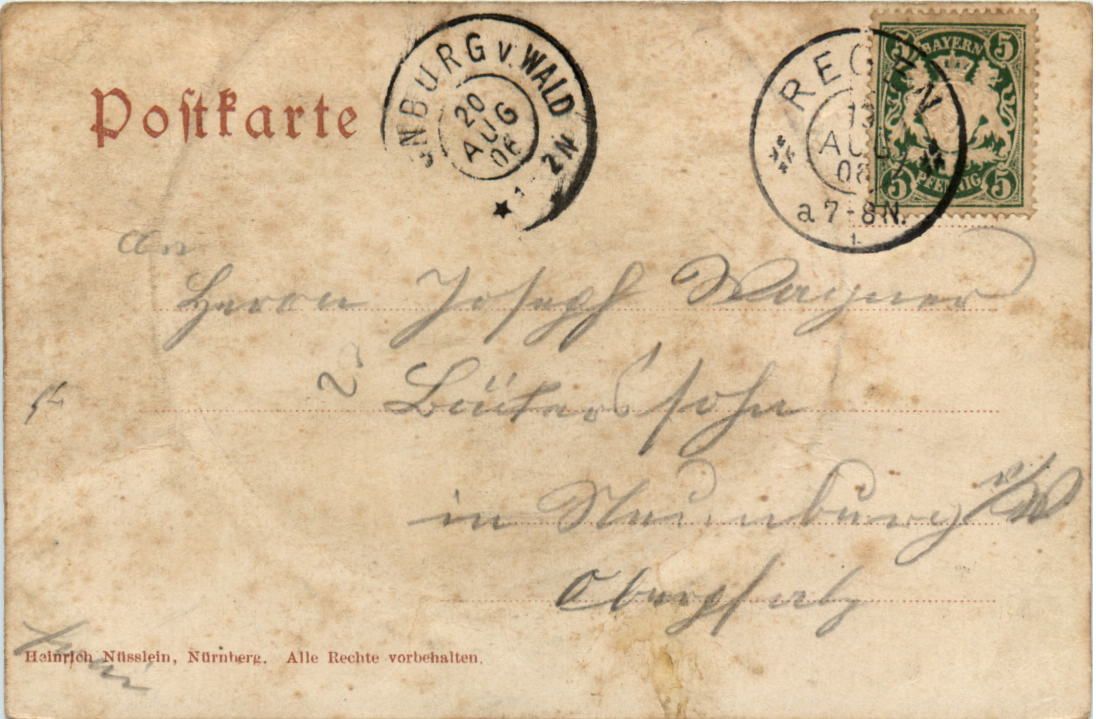 Postkarte
NBURG v. WALD
20
AUG
06
1-2N
REGEN
AUG
a 7-8N.
1
BAYERN
5 5
5 5
PFENNIG
An
Herrn Joseph Wagner
Bäckerssohn
in Neunburg v/W
Oberpfalz
Heinrich Nüsslein, Nürnberg. Alle Rechte vorbehalten.